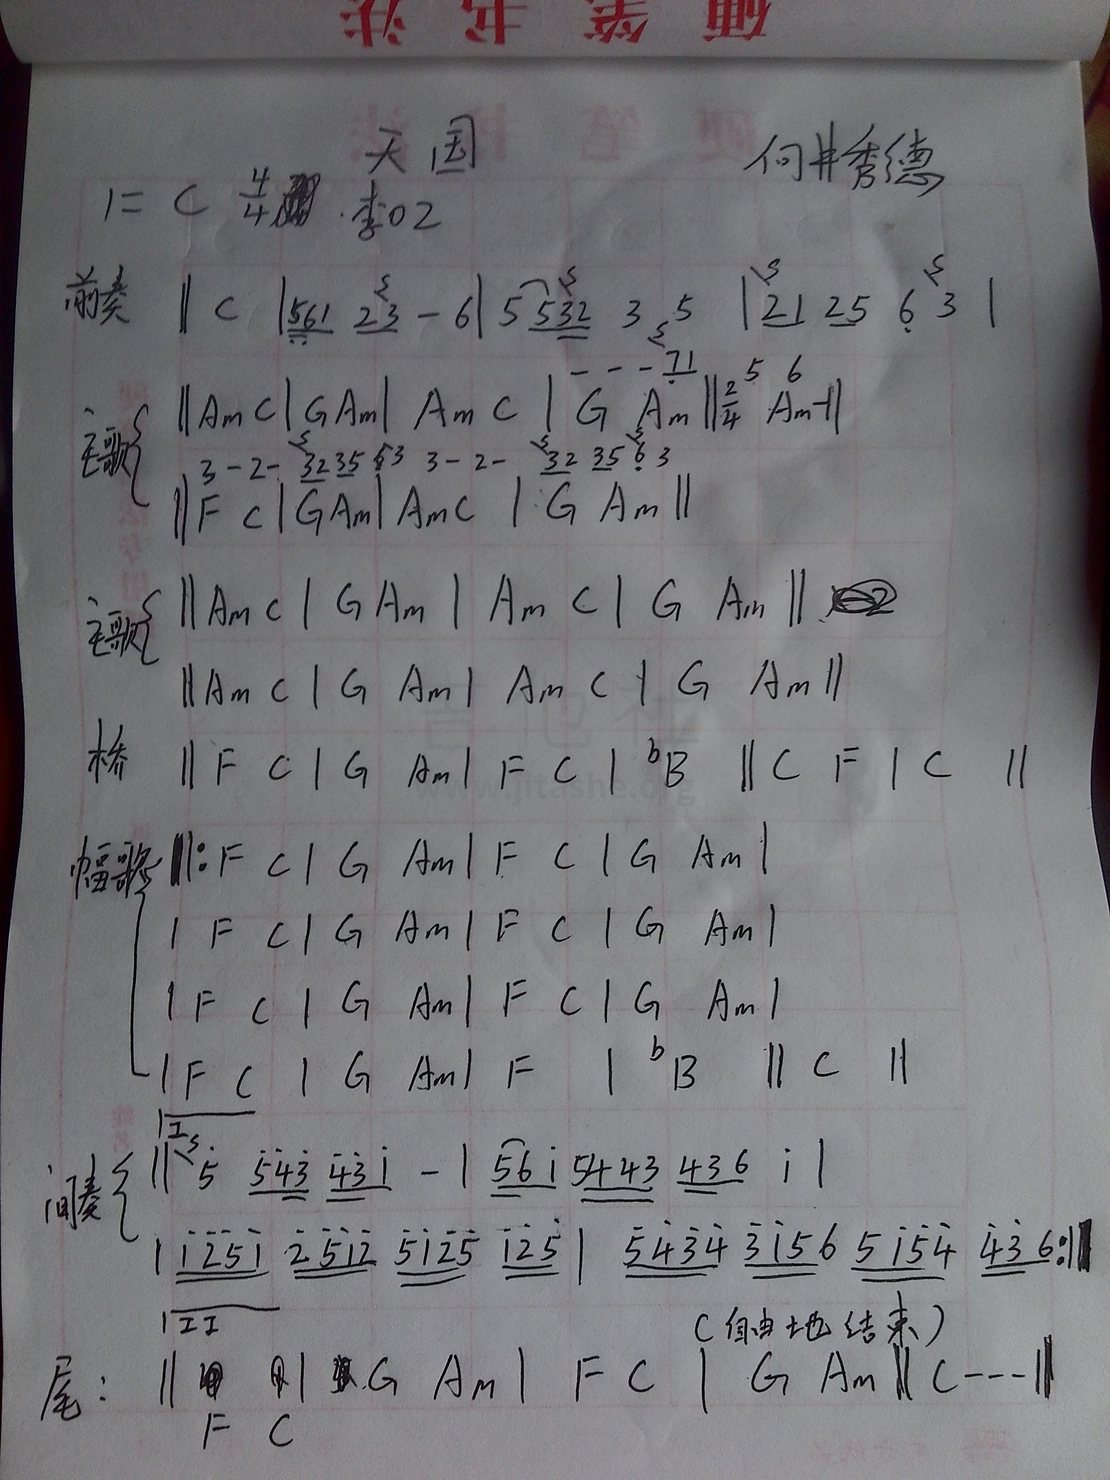 硬笔书法
天国
何井秀德
1=C 4/4 李02
前奏 || C | 561 23 - 6 | 5 532 3 5 | 21 25 6 3 |
- - - 71 5 6
主歌 || Am C | G Am | Am C | G Am || 2/4 Am - ||
3 - 2 - 32 35 63 3 - 2 - 32 35 6 3
|| F C | G Am | Am C | G Am ||
主歌 || Am C | G Am | Am C | G Am ||
|| Am C | G Am | Am C | G Am ||
桥 || F C | G Am | F C | bB || C F | C ||
www.jitashe.org
幅歌 ||: F C | G Am | F C | G Am |
| F C | G Am | F C | G Am |
| F C | G Am | F C | G Am |
| F C | G Am | F | bB || C ||
I
间奏 || 5 543 431 - | 56i 5443 436 i |
| i251 2512 5125 125 | 5434 3156 5154 436 :||
II
(自由地结束)
尾: || G Am | F C | G Am || C - - - ||
F C